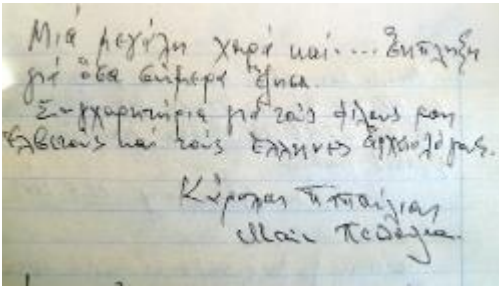 Μιά μεγάλη χαρά και.... Έκπληξη
γιά ὅσα σήμερα ἔζησα.
Συγχαρητήρια γιά τούς φίλους μου
Ἑλβετούς καί τούς Έλληνες ἀρχαιολόγους.
Κάρολος